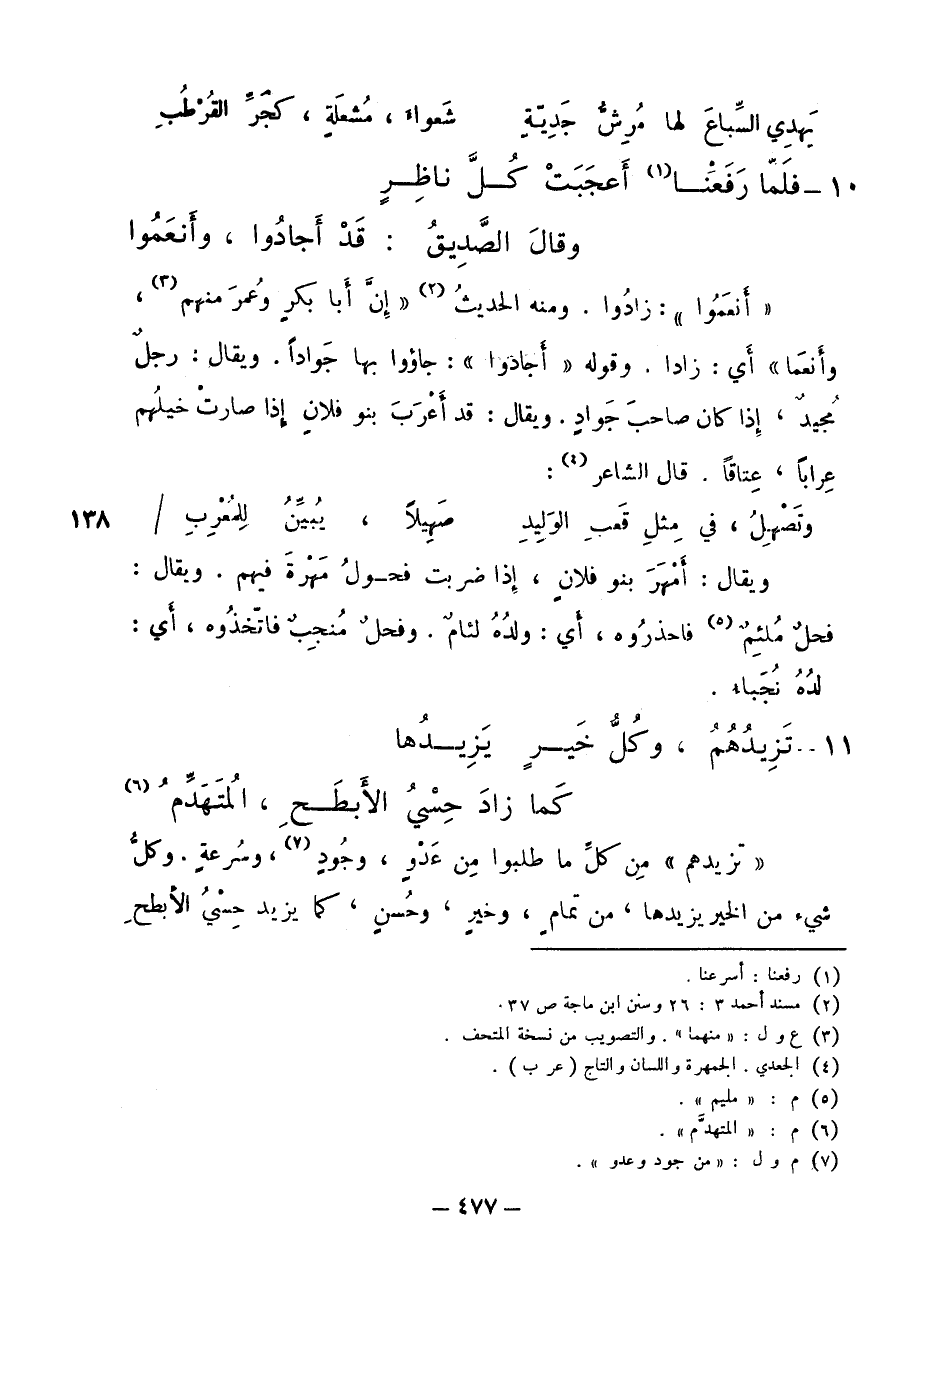 يَهدِي السِّباعَ لها مُرِشُّ جَدِيّةٍ شَعواءَ ، مُشعَلَةٍ ، كجَرِّ القُرْطُبِ
١٠ – فلَمّا رَفَعْنــا(١) أَعجَبَتْ كُــلَّ ناظِــرٍ
وقالَ الصَّدِيقُ : قَدْ أَجادُوا ، وأَنعَمُوا
« أَنعَمُوا » : زادُوا . ومنه الحديثُ(٢) « إِنَّ أَبا بكرٍ وعُمرَ منهم(٣) ،
وأَنعَما » أَي : زادا . وقوله « أَجادُوا » : جاؤوا بها جَواداً . ويقال : رجلٌ
مُجيدٌ ، إِذا كان صاحبَ جَوادٍ . ويقال : قد أَعْرَبَ بنو فلانٍ إِذا صارتْ خيلُهم
عِراباً ، عِتاقاً . قال الشاعر(٤) :
وتَصْهِلُ ، في مِثلِ قَعبِ الوَلِيدِ صَهِيلاً ، يُبيِّنُ لِلمُعْرِبِ / ١٣٨
ويقال : أَمْهَرَ بنو فلانٍ ، إِذا ضربت فحـولُ مَهْرَةَ فيهم . ويقال :
فحلٌ مُلئِمٌ(٥) فاحذرُوه ، أَي : ولدُهُ لئامٌ . وفحلٌ مُنجِبٌ فاتّخذُوه ، أَي :
لدُهُ نُجَباءُ .
١١ – تَزِيدُهُمُ ، وكُلُّ خَيــرٍ يَزِيــدُها
كَما زادَ حِسْيُ الأَبطَــحِ ، المُتَهَدِّمُ(٦)
« تزيدهم » مِن كلِّ ما طلبوا مِن عَدْوٍ ، وجُودٍ(٧) ، وسُرعةٍ . وكلُّ
شيء من الخير يزيدها ، من تمامٍ ، وخيرٍ ، وحُسنٍ ، كما يزيد حِسْيُ الأبطحِ
(١) رفعنا : أسرعنا .
(٢) مسند أحمد ٣ : ٢٦ وسنن ابن ماجة ص ٣٧ .
(٣) ع و ل : « منهما » . والتصويب من نسخة المتحف .
(٤) الجعدي . الجمهرة واللسان والتاج ( عرب ) .
(٥) م : « مليم » .
(٦) م : « المتهدَّم » .
(٧) م و ل : « من جود وعدو » .
– ٤٧٧ –